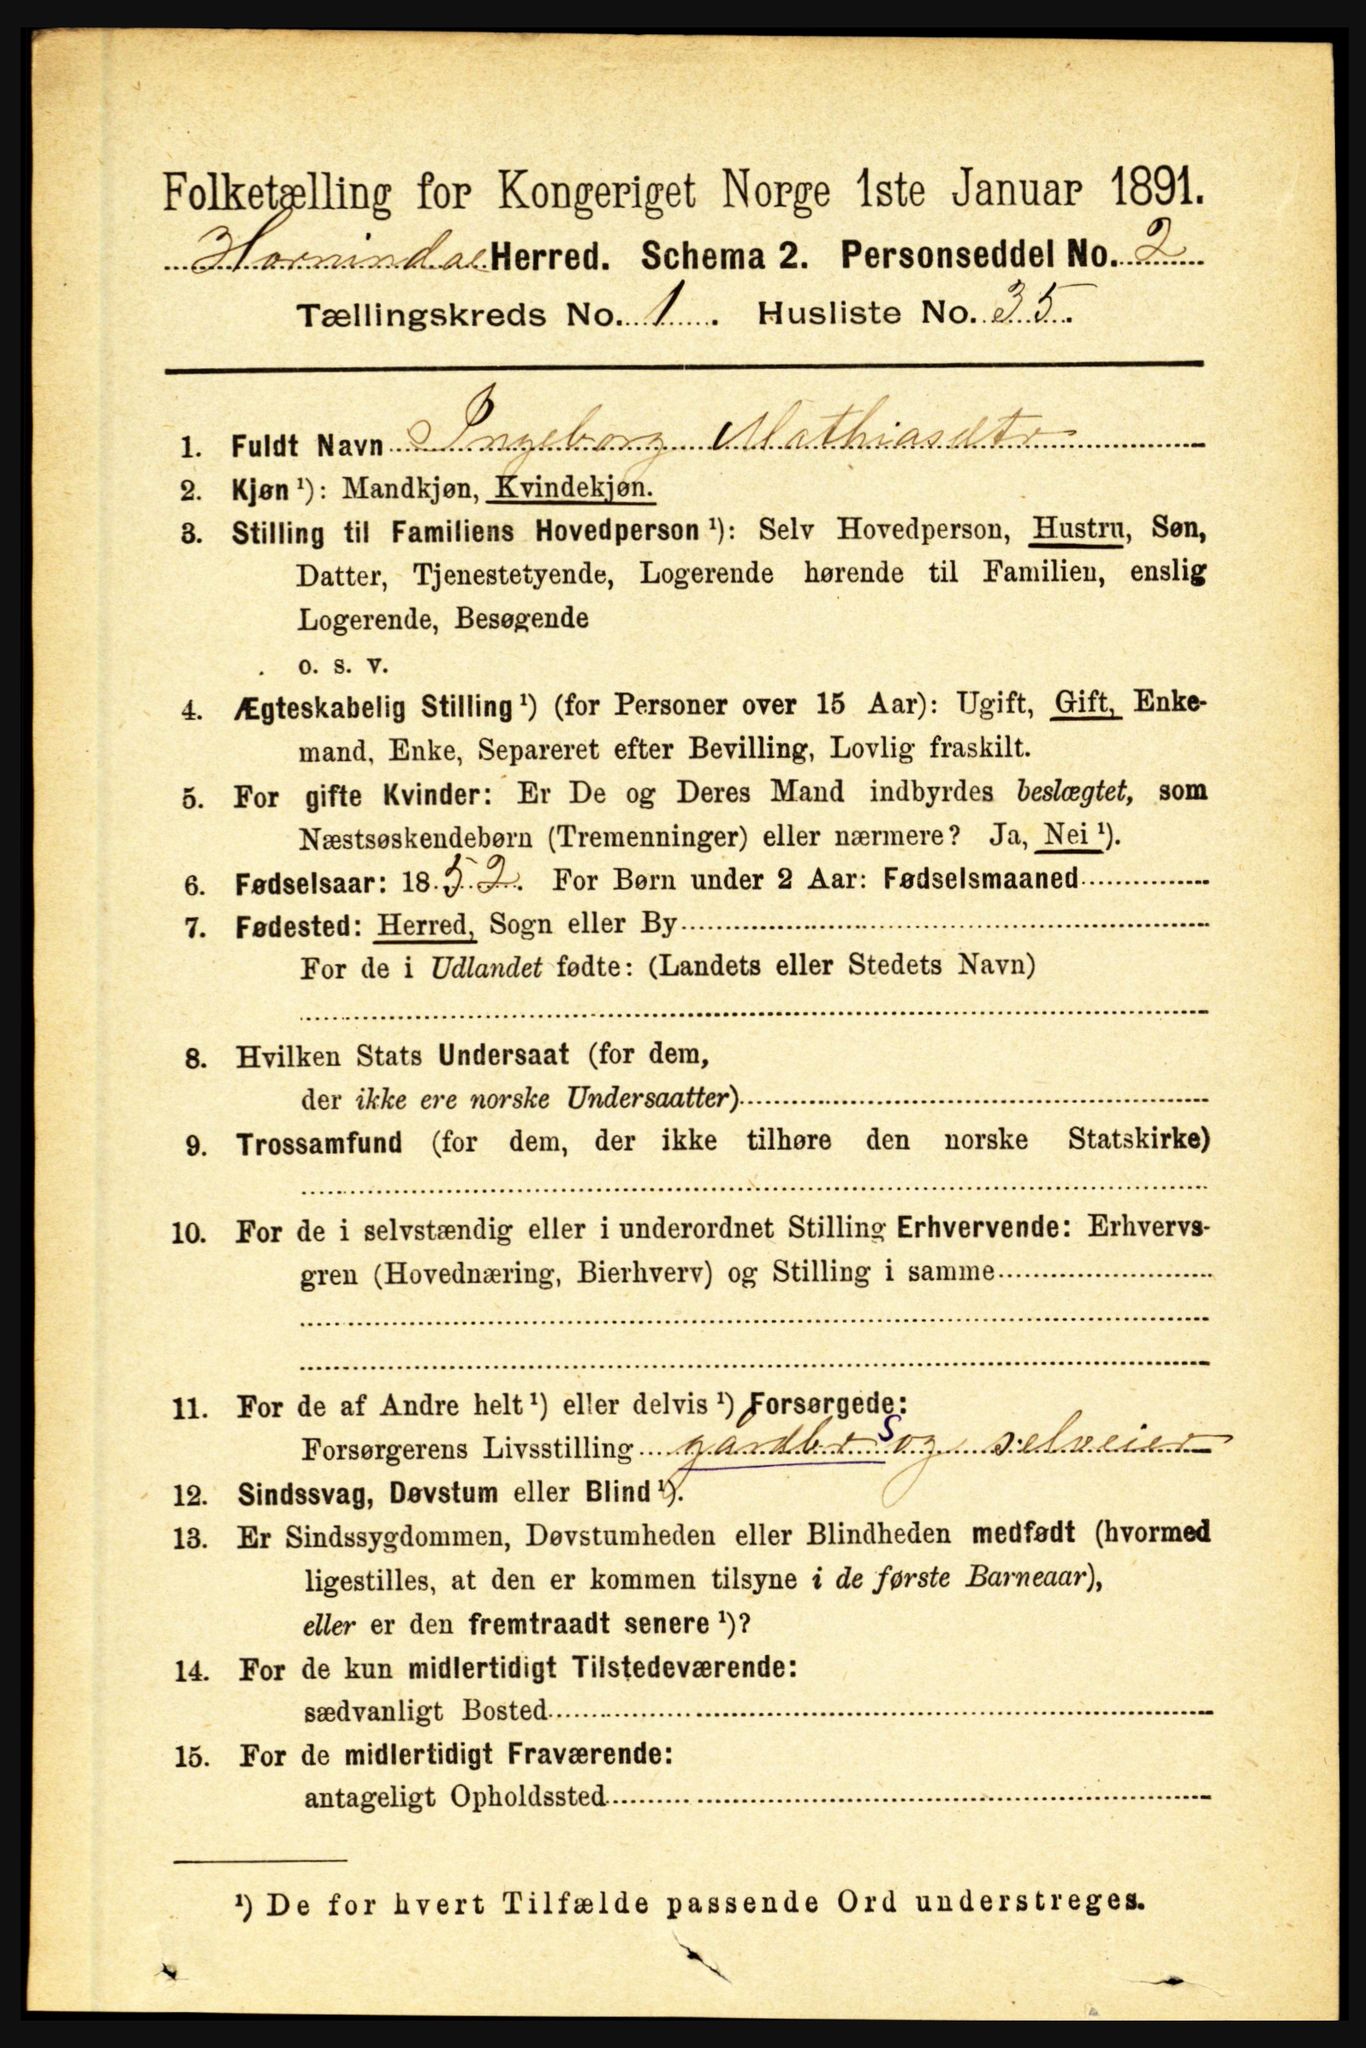 Folketælling for Kongeriget Norge 1ste Januar 1891.
Hornindal Herred. Schema 2. Personseddel No. 2
Tællingskreds No. 1. Husliste No. 35.
1. Fuldt Navn Ingeborg Mathiasdtr
2. Kjøn ¹): Mandkjøn, Kvindekjøn.
3. Stilling til Familiens Hovedperson ¹): Selv Hovedperson, Hustru, Søn,
Datter, Tjenestetyende, Logerende hørende til Familien, enslig
Logerende, Besøgende
o. s. v.
4. Ægteskabelig Stilling ¹) (for Personer over 15 Aar): Ugift, Gift, Enke-
mand, Enke, Separeret efter Bevilling, Lovlig fraskilt.
5. For gifte Kvinder: Er De og Deres Mand indbyrdes beslægtet, som
Næstsøskendebørn (Tremenninger) eller nærmere? Ja, Nei ¹).
6. Fødselsaar: 1852. For Børn under 2 Aar: Fødselsmaaned
7. Fødested: Herred, Sogn eller By
For de i Udlandet fødte: (Landets eller Stedets Navn)
8. Hvilken Stats Undersaat (for dem,
der ikke ere norske Undersaatter)
9. Trossamfund (for dem, der ikke tilhøre den norske Statskirke)
10. For de i selvstændig eller i underordnet Stilling Erhvervende: Erhvervs-
gren (Hovednæring, Bierhverv) og Stilling i samme
11. For de af Andre helt ¹) eller delvis ¹) Forsørgede:
Forsørgerens Livsstilling gardbr S og selveier
12. Sindssvag, Døvstum eller Blind ¹).
13. Er Sindssygdommen, Døvstumheden eller Blindheden medfødt (hvormed
ligestilles, at den er kommen tilsyne i de første Barneaar),
eller er den fremtraadt senere ¹)?
14. For de kun midlertidigt Tilstedeværende:
sædvanligt Bosted
15. For de midlertidigt Fraværende:
antageligt Opholdssted
¹) De for hvert Tilfælde passende Ord understreges.